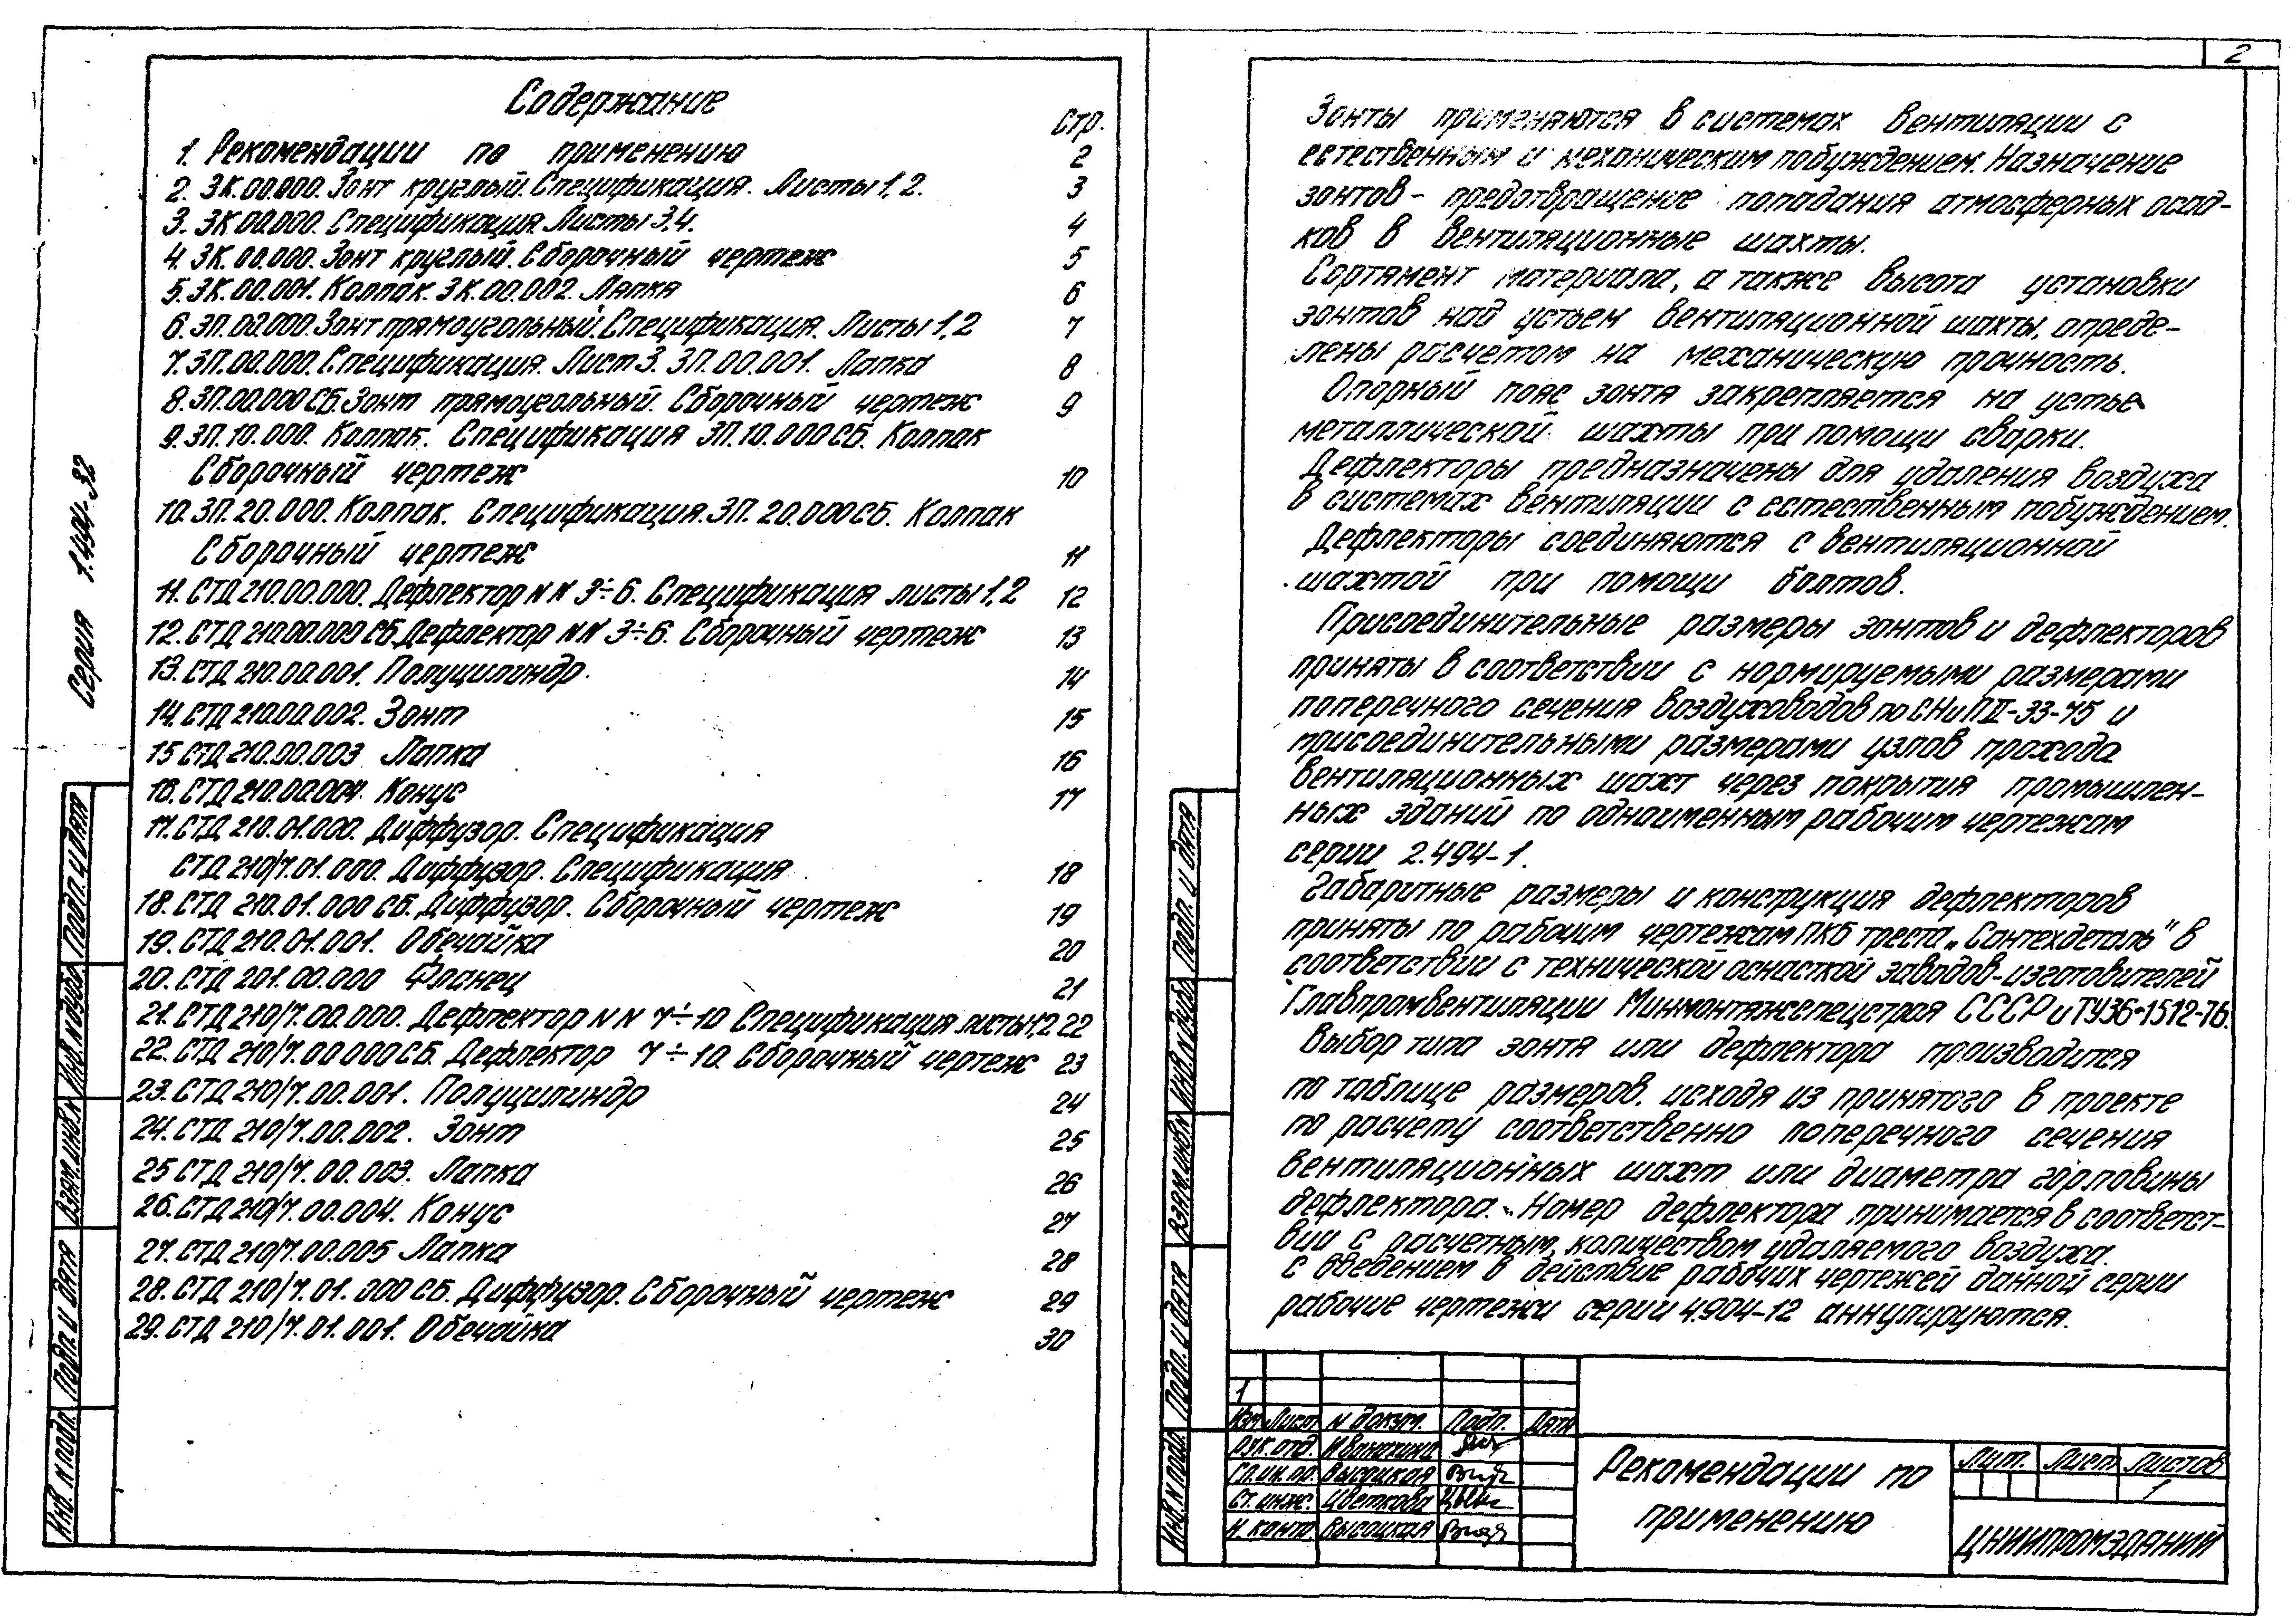 Содержание
Стр.
1. Рекомендации по применению 2
2. ЗК.00.000. Зонт круглый. Спецификация. Листы 1,2. 3
3. ЗК 00.000. Спецификация. Листы 3.4. 4
4. ЗК.00.000. Зонт круглый. Сборочный чертеж 5
5. ЗК.00.001. Колпак. ЗК.00.002. Лапка 6
6. ЗП.00.000. Зонт прямоугольный. Спецификация. Листы 1,2 7
7. ЗП.00.000. Спецификация. Лист 3. ЗП.00.001. Лапка 8
8. ЗП.00.000 СБ. Зонт прямоугольный. Сборочный чертеж 9
9. ЗП.10.000. Колпак. Спецификация ЗП.10.000СБ. Колпак
Сборочный чертеж 10
10. ЗП.20.000. Колпак. Спецификация. ЗП.20.000СБ. Колпак
Сборочный чертеж 11
11. СТД 210.00.000. Дефлектор NN 3÷6. Спецификация листы 1,2 12
12. СТД 210.00.000 СБ. Дефлектор NN 3÷6. Сборочный чертеж 13
13. СТД 210.00.001. Полуцилиндр. 14
14. СТД 210.00.002. Зонт 15
15 СТД 210.00.003 Лапка 16
16. СТД 210.00.004. Конус 17
17. СТД 210.01.000. Диффузор. Спецификация
СТД 210/7.01.000. Диффузор. Спецификация 18
18. СТД 210.01.000 СБ. Диффузор. Сборочный чертеж 19
19. СТД 210.01.001. Обечайка 20
20. СТД 201.00.000 Фланец 21
21. СТД 210/7.00.000. Дефлектор NN 7÷10 Спецификация листы 1,2 22
22. СТД 210/7.00 000СБ. Дефлектор 7÷10. Сборочный чертеж 23
23. СТД 210/7.00.001. Полуцилиндр 24
24. СТД 210/7.00.002. Зонт 25
25 СТД 210/7.00.003. Лапка 26
26. СТД 210/7.00.004. Конус 27
27. СТД 210/7.00.005 Лапка 28
28. СТД 210/7.01.000 СБ. Диффузор. Сборочный чертеж 29
29. СТД 210/7.01.001. Обечайка 30
Серия 1.494-32
Подп. и дата
Инв. N дубл.
Взам. инв. N
Подп. и дата
Инв. N подл.
2
Зонты применяются в системах вентиляции с
естественным и механическим побуждением. Назначение
зонтов - предотвращение попадания атмосферных осад-
ков в вентиляционные шахты.
Сортамент материала, а также высота установки
зонтов над устьем вентиляционной шахты, опреде-
лены расчетом на механическую прочность.
Опорный пояс зонта закрепляется на устье
металлической шахты при помощи сварки.
Дефлекторы предназначены для удаления воздуха
в системах вентиляции с естественным побуждением.
Дефлекторы соединяются с вентиляционной
шахтой при помощи болтов.
Присоединительные размеры зонтов и дефлекторов
приняты в соответствии с нормируемыми размерами
поперечного сечения воздуховодов по СНиП II-33-75 и
присоединительными размерами узлов прохода
вентиляционных шахт через покрытия промышлен-
ных зданий по одноименным рабочим чертежам
серии 2.494-1.
Габаритные размеры и конструкция дефлекторов
приняты по рабочим чертежам ПКБ треста „Сантехдеталь" в
соответствии с технической оснасткой заводов-изготовителей
Главпромвентиляции Минмонтажспецстроя СССР и ТУ36-1512-76.
Выбор типа зонта или дефлектора производится
по таблице размеров, исходя из принятого в проекте
по расчету соответственно поперечного сечения
вентиляционных шахт или диаметра горловины
дефлектора. Номер дефлектора принимается в соответст-
вии с расчетным, количеством удаляемого воздуха.
С введением в действие рабочих чертежей данной серии
рабочие чертежи серии 4.904-12 аннулируются.
Подп. и дата
Инв. N дубл.
Взам. инв. N
Подп. и дата
Инв. N подл.
1
Изм. Лист N докум. Подп. Дата
Рук. отд.
Гл. ин. пр. Высоцкая
Ст. инж. Цветкова
Н. контр. Высоцкая
Рекомендации по
применению
Лит. Лист Листов
1
ЦНИИПРОМЗДАНИЙ